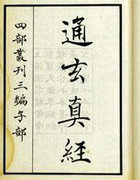 通玄真經
四部叢刊三編子部